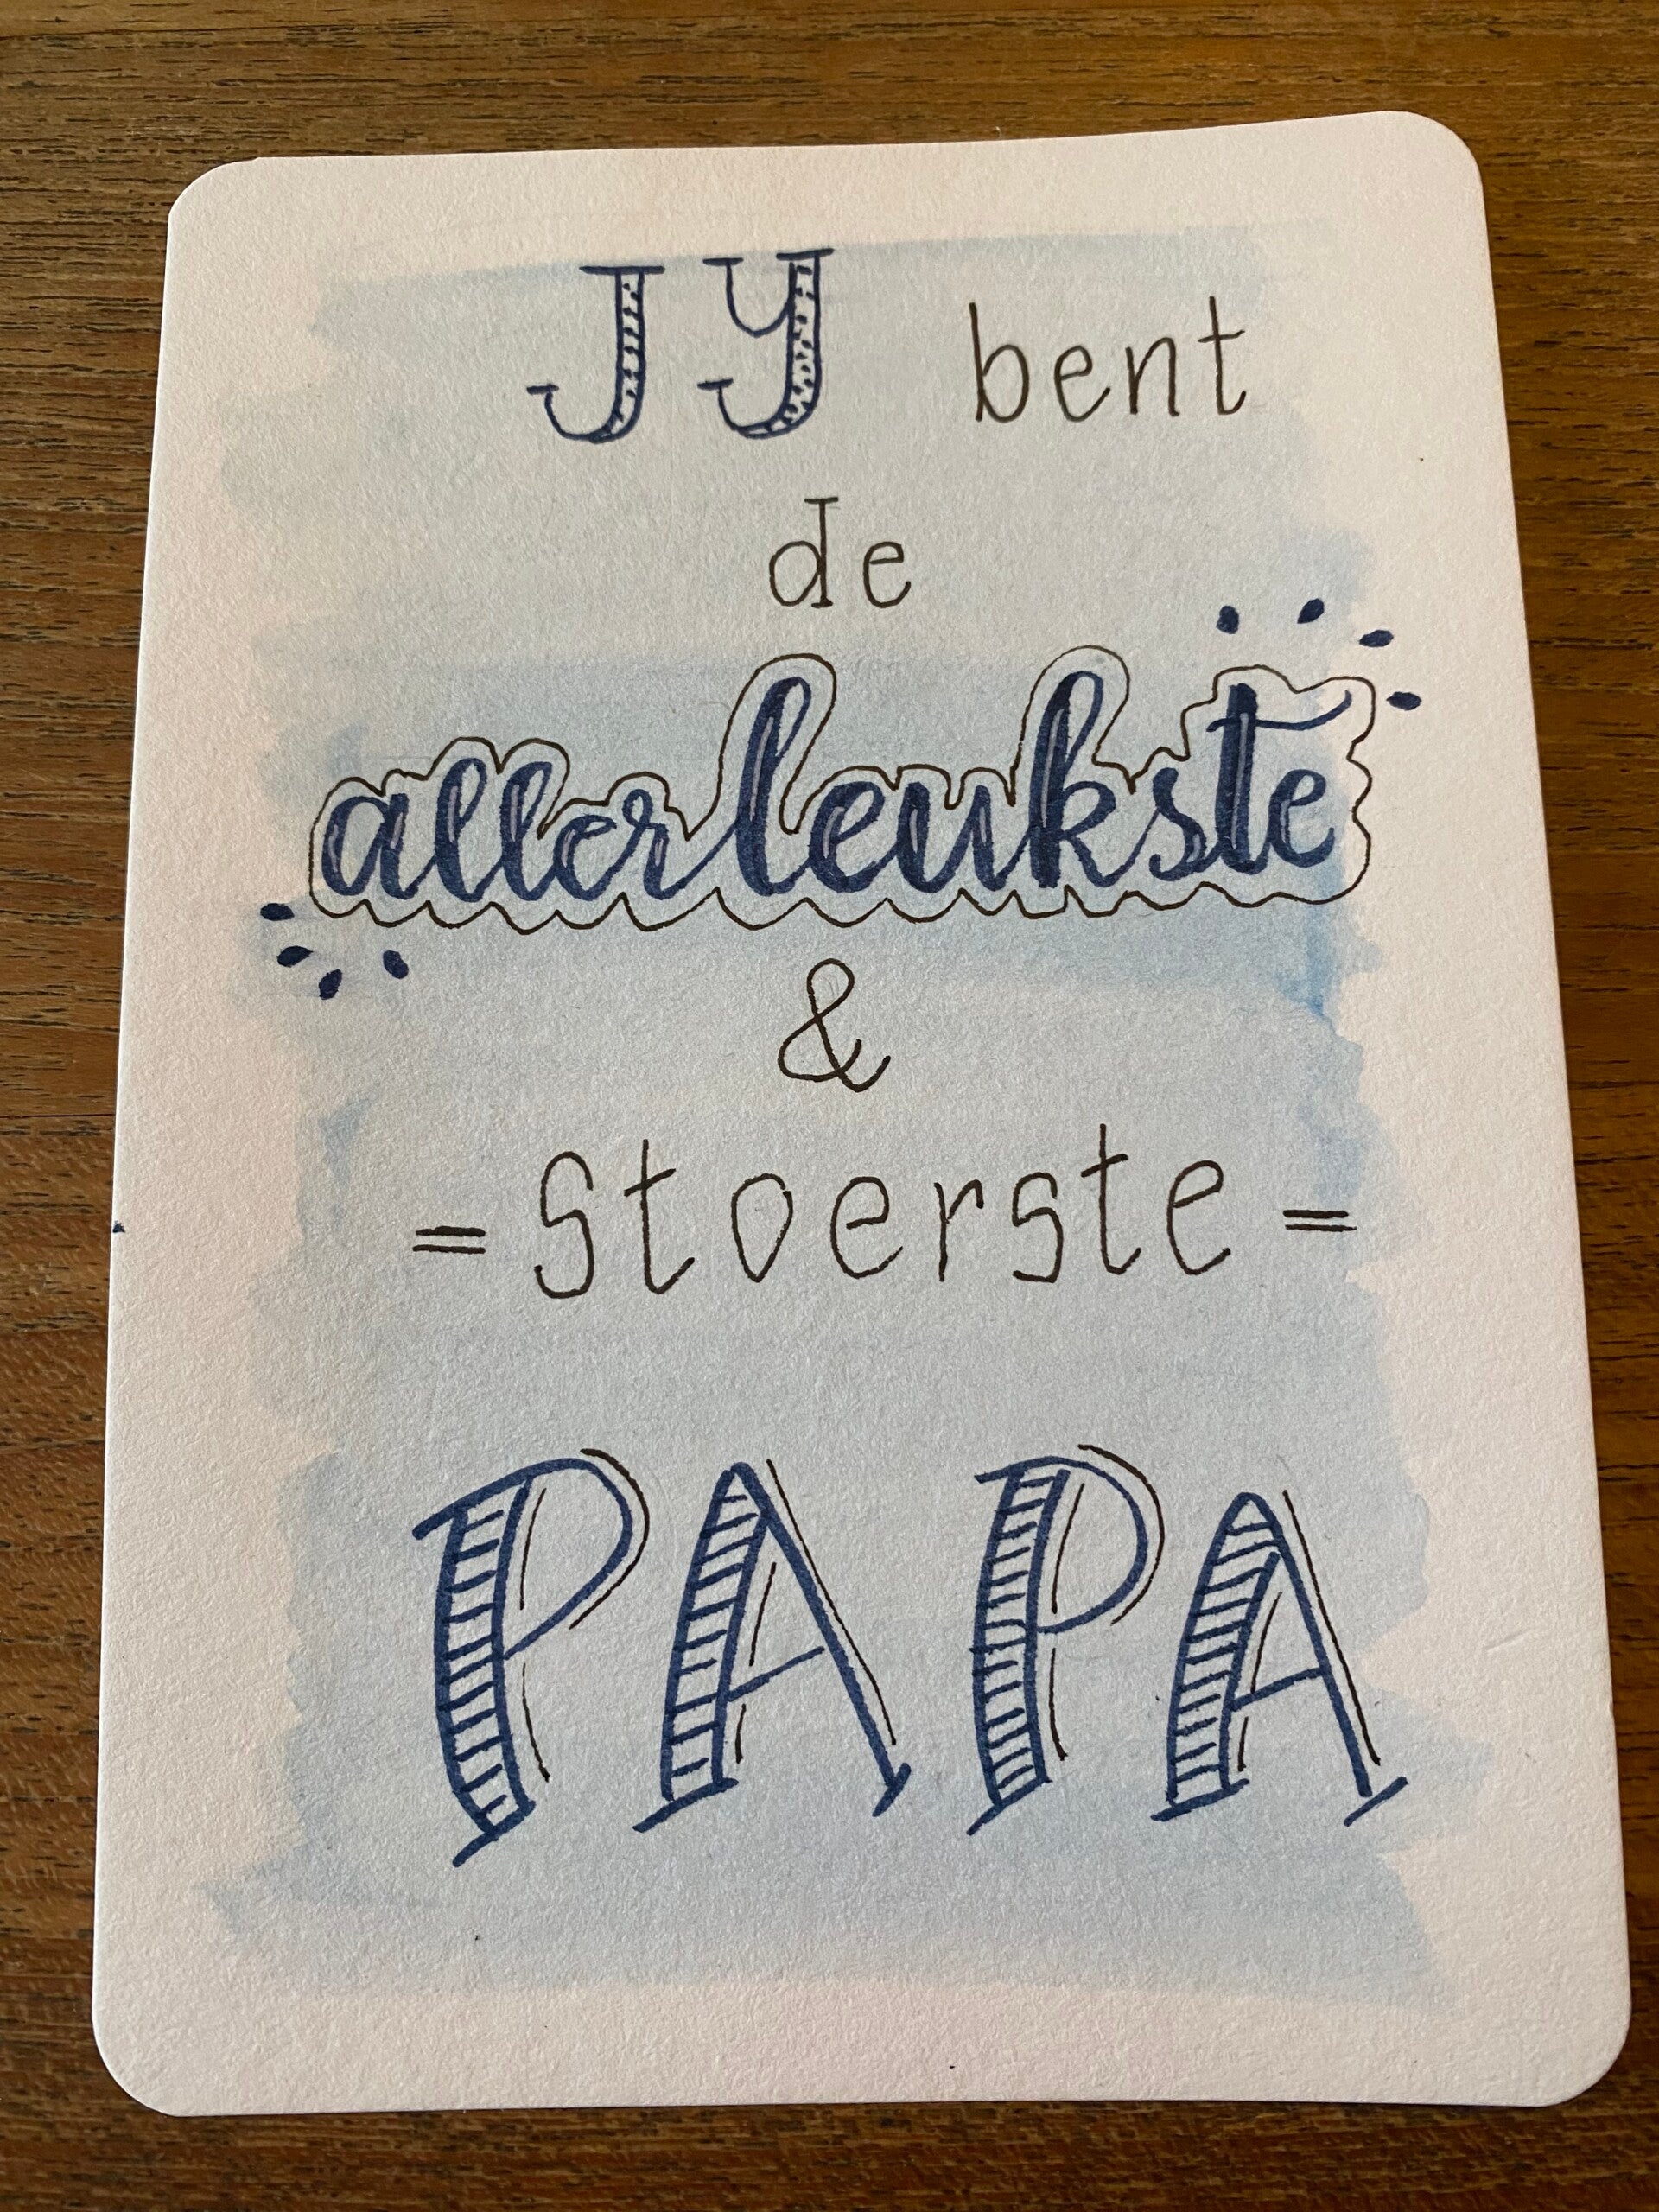 JY bent
de
allerleukste
&
= Stoerste =
PAPA